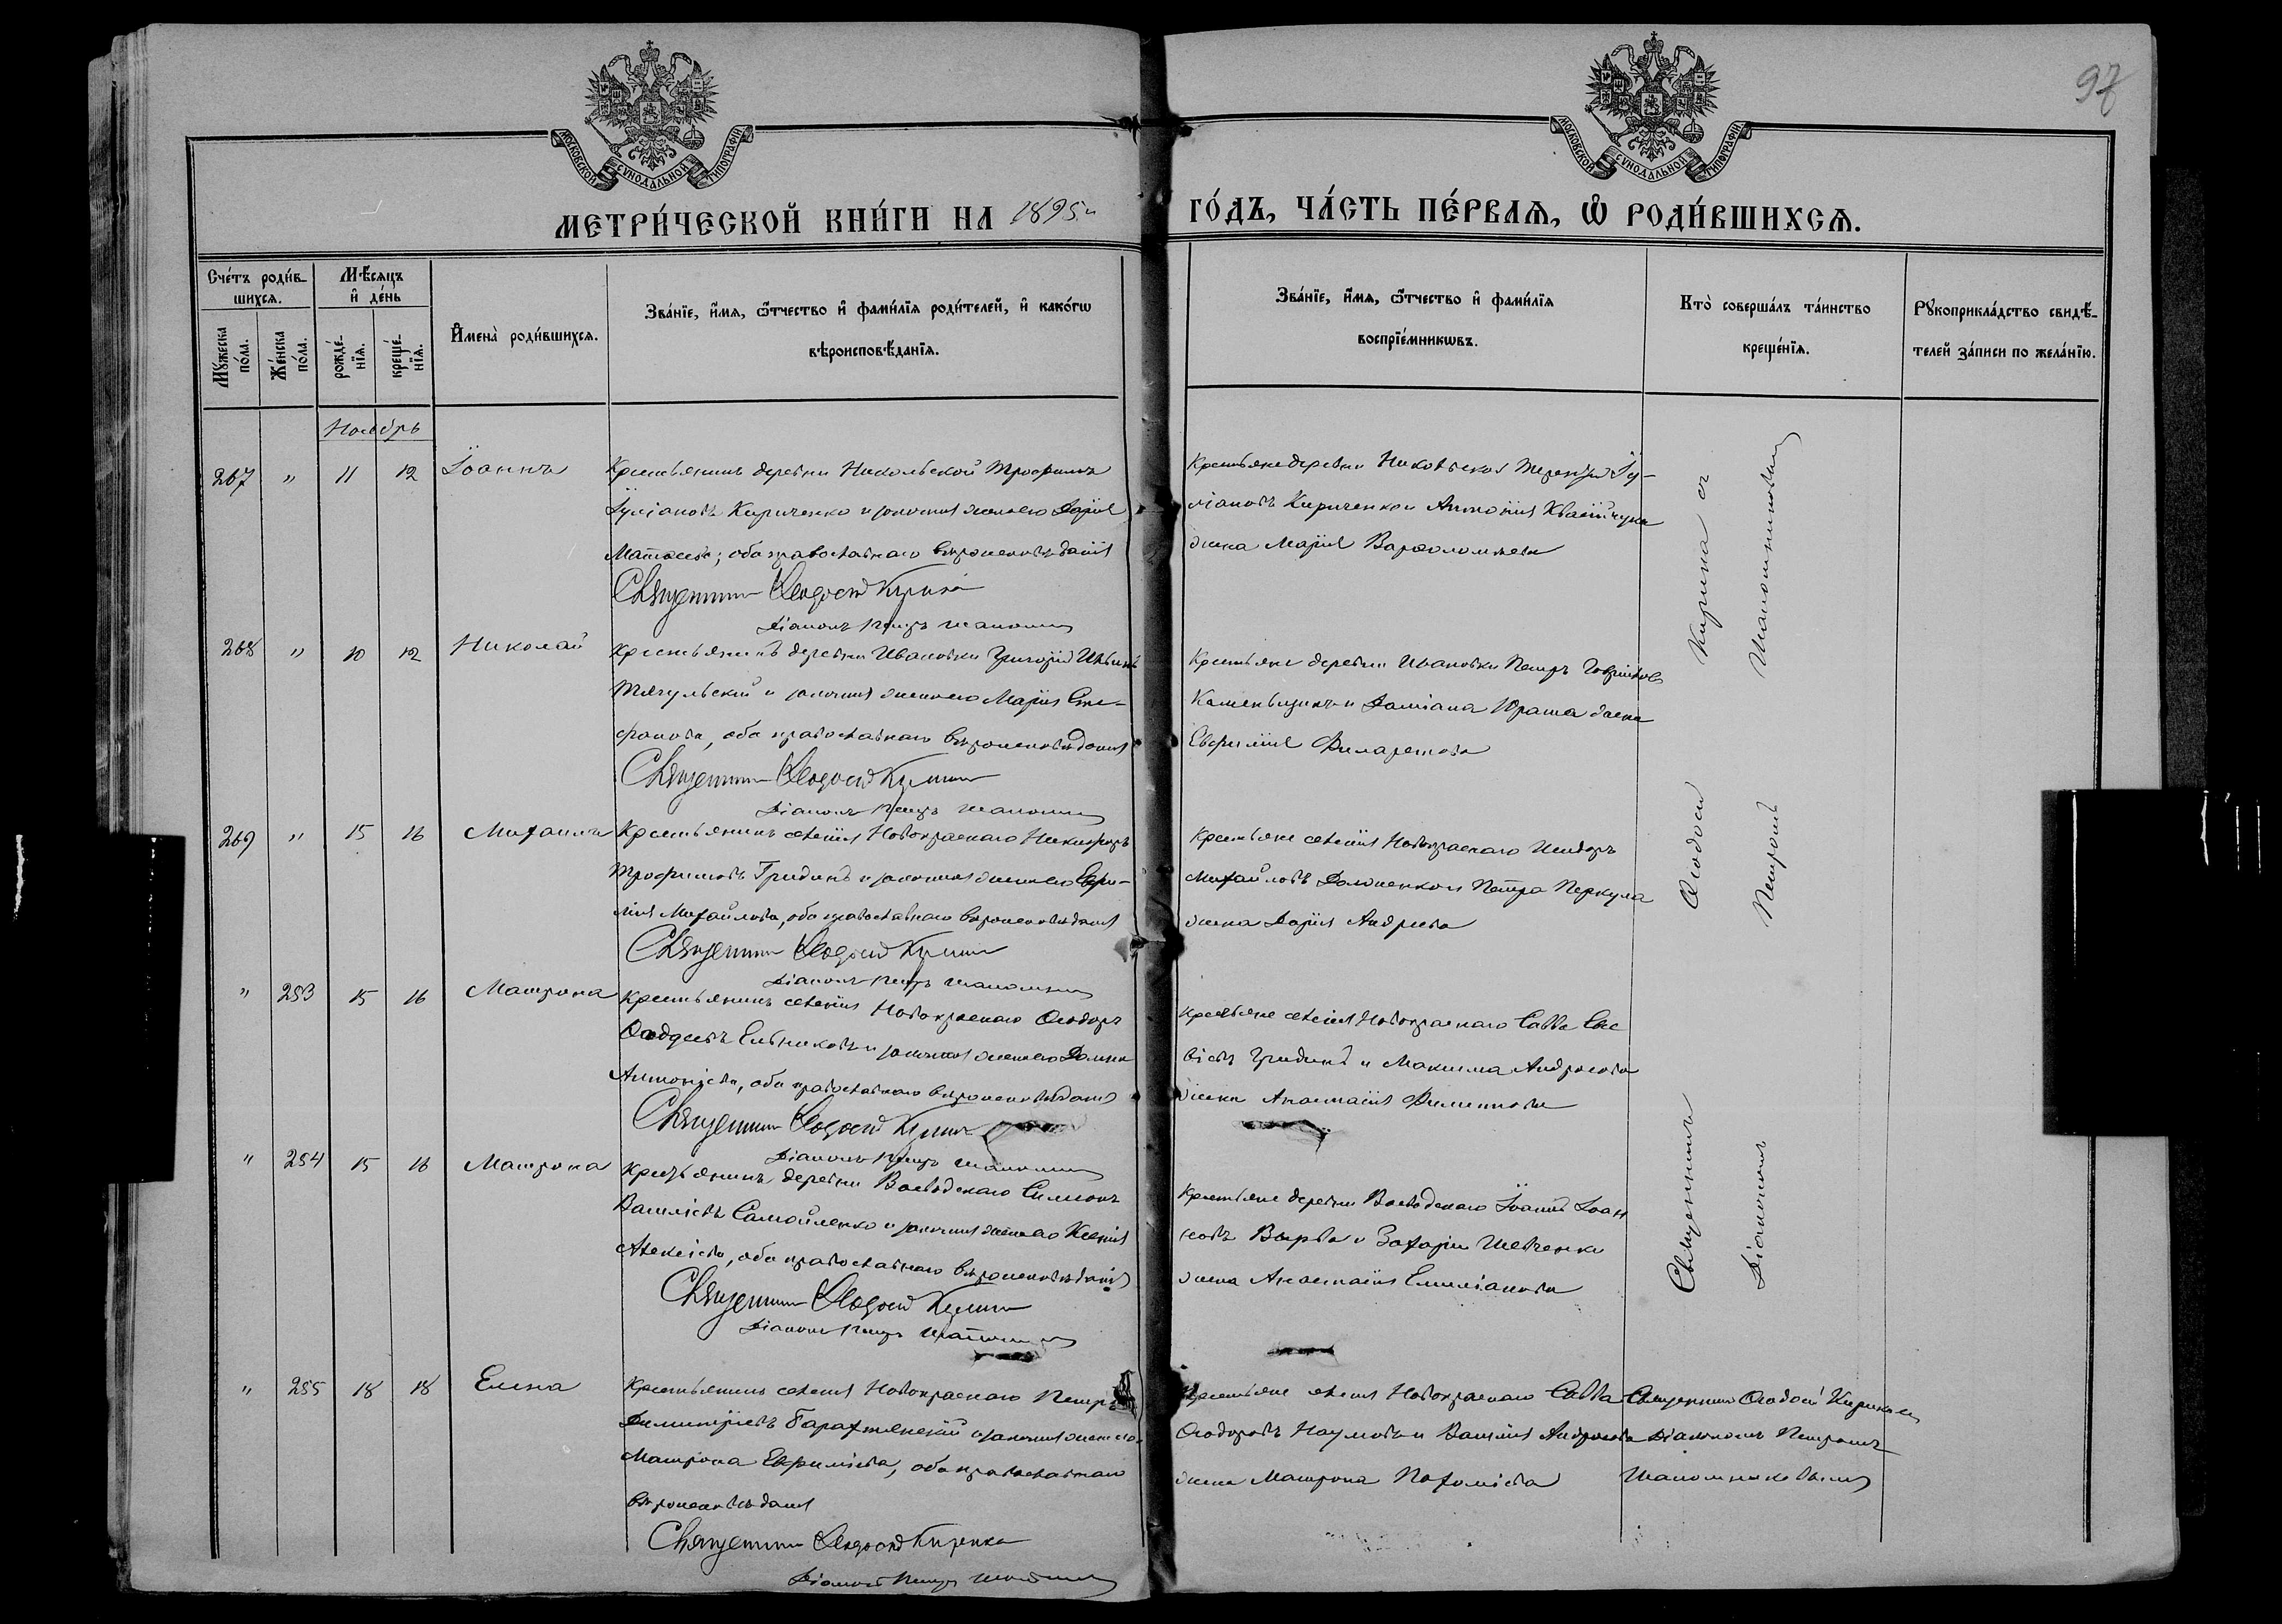 97
МОСКОВСКОЙ СУНОДАЛЬНОЙ ТИПОГРАФІИ
МОСКОВСКОЙ СУНОДАЛЬНОЙ ТИПОГРАФІИ
МЕТРИ́ЧЕСКОЙ КНИ́ГИ НА 1895й ГО́ДЪ, ЧА́СТЬ ПЕ́РВАѦ, Ѽ РОДИ́ВШИХСѦ.
Сче́тъ роди́в-
шихсѧ.
Мꙋ́жеска по́ла.
Же́нска по́ла.
Мѣ́сѧцъ
и҆ де́нь
рожде́-
нїѧ.
креще́-
нїѧ.
И҆мена̀ роди́вшихсѧ.
Зва́нїе, и҆́мѧ, ѻ҆́тчество и҆ фами́лїѧ роди́телей, и҆ како́гѡ
вѣроисповѣ́данїѧ.
Зва́нїе, и҆́мѧ, ѻ҆́тчество и҆ фами́лїѧ
воспрїе́мникѡвъ.
Кто̀ соверша́лъ та́инство
креще́нїѧ.
Рꙋкоприкла́дство свидѣ́-
телей за́писи по жела́нїю.
Ноябрь
267 " 11 12 Іоаннъ
Крестьянинъ деревни Никольской Трофимъ
Іуліановъ Кириченко и законная жена его Дарія
Матѳеева; оба православнаго вѣроисповѣданія
Священникъ Ѳеодосій Кирика
Діаконъ Петръ
Крестьяне деревни Никольской Терентій Іу-
ліановъ Кириченко и Антонія
жена Марія Варѳоломеева
268 " 10 12 Николай
Крестьянинъ деревни Ивановки Григорій
и законная жена его Марія Сте-
фанова, оба православнаго вѣроисповѣданія
Священникъ Ѳеодосій Кирика
Діаконъ Петръ
Крестьяне деревни Ивановки Петръ
и Даміана Юраша жена
Евфимія Филаретова
269 " 15 16 Михаилъ
Крестьянинъ селенія Новокраснаго Никифоръ
Трофимовъ Гридинъ и законная жена его Евфи-
мія Михайлова, оба православнаго вѣроисповѣданія
Священникъ Ѳеодосій Кирика
Діаконъ Петръ
Крестьяне селенія Новокраснаго Исидоръ
Михайловъ и Петра Перкула
жена Дарія Андреева
" 253 15 16 Матрона
Крестьянинъ селенія Новокраснаго Ѳеодоръ
и законная жена его Домна
Антоніева, оба православнаго вѣроисповѣданія
Священникъ Ѳеодосій Кирика
Діаконъ Петръ
Крестьяне селенія Новокраснаго Савва Сав-
віевъ Гридинъ и Максима Андросова
жена Анастасія Филиппова
" 254 15 16 Матрона
Крестьянинъ деревни Воеводскаго Симеонъ
Василіевъ Самойленко и законная жена его Ксенія
Алексіева, оба православнаго вѣроисповѣданія
Священникъ Ѳеодосій Кирика
Діаконъ Петръ
Крестьяне деревни Воеводскаго Іоаннъ Іоан
новъ и Захарія Шевченка
жена Анастасія Емиліанова
Священникъ Ѳеодосій Кирика съ
Діакономъ Петромъ
" 255 18 18 Елена
Крестьянинъ селенія Новокраснаго Петръ
Димитріевъ и законная жена его
Матрона Евфиміева, оба православнаго
вѣроисповѣданія
Священникъ Ѳеодосій Кирика
Діаконъ Петръ
Крестьяне селенія Новокраснаго Савва
Ѳеодоровъ Наумовъ и Василія Андросова
жена Матрона Пахоміева
Священникъ Ѳеодосій Кирика съ
Діакономъ Петромъ